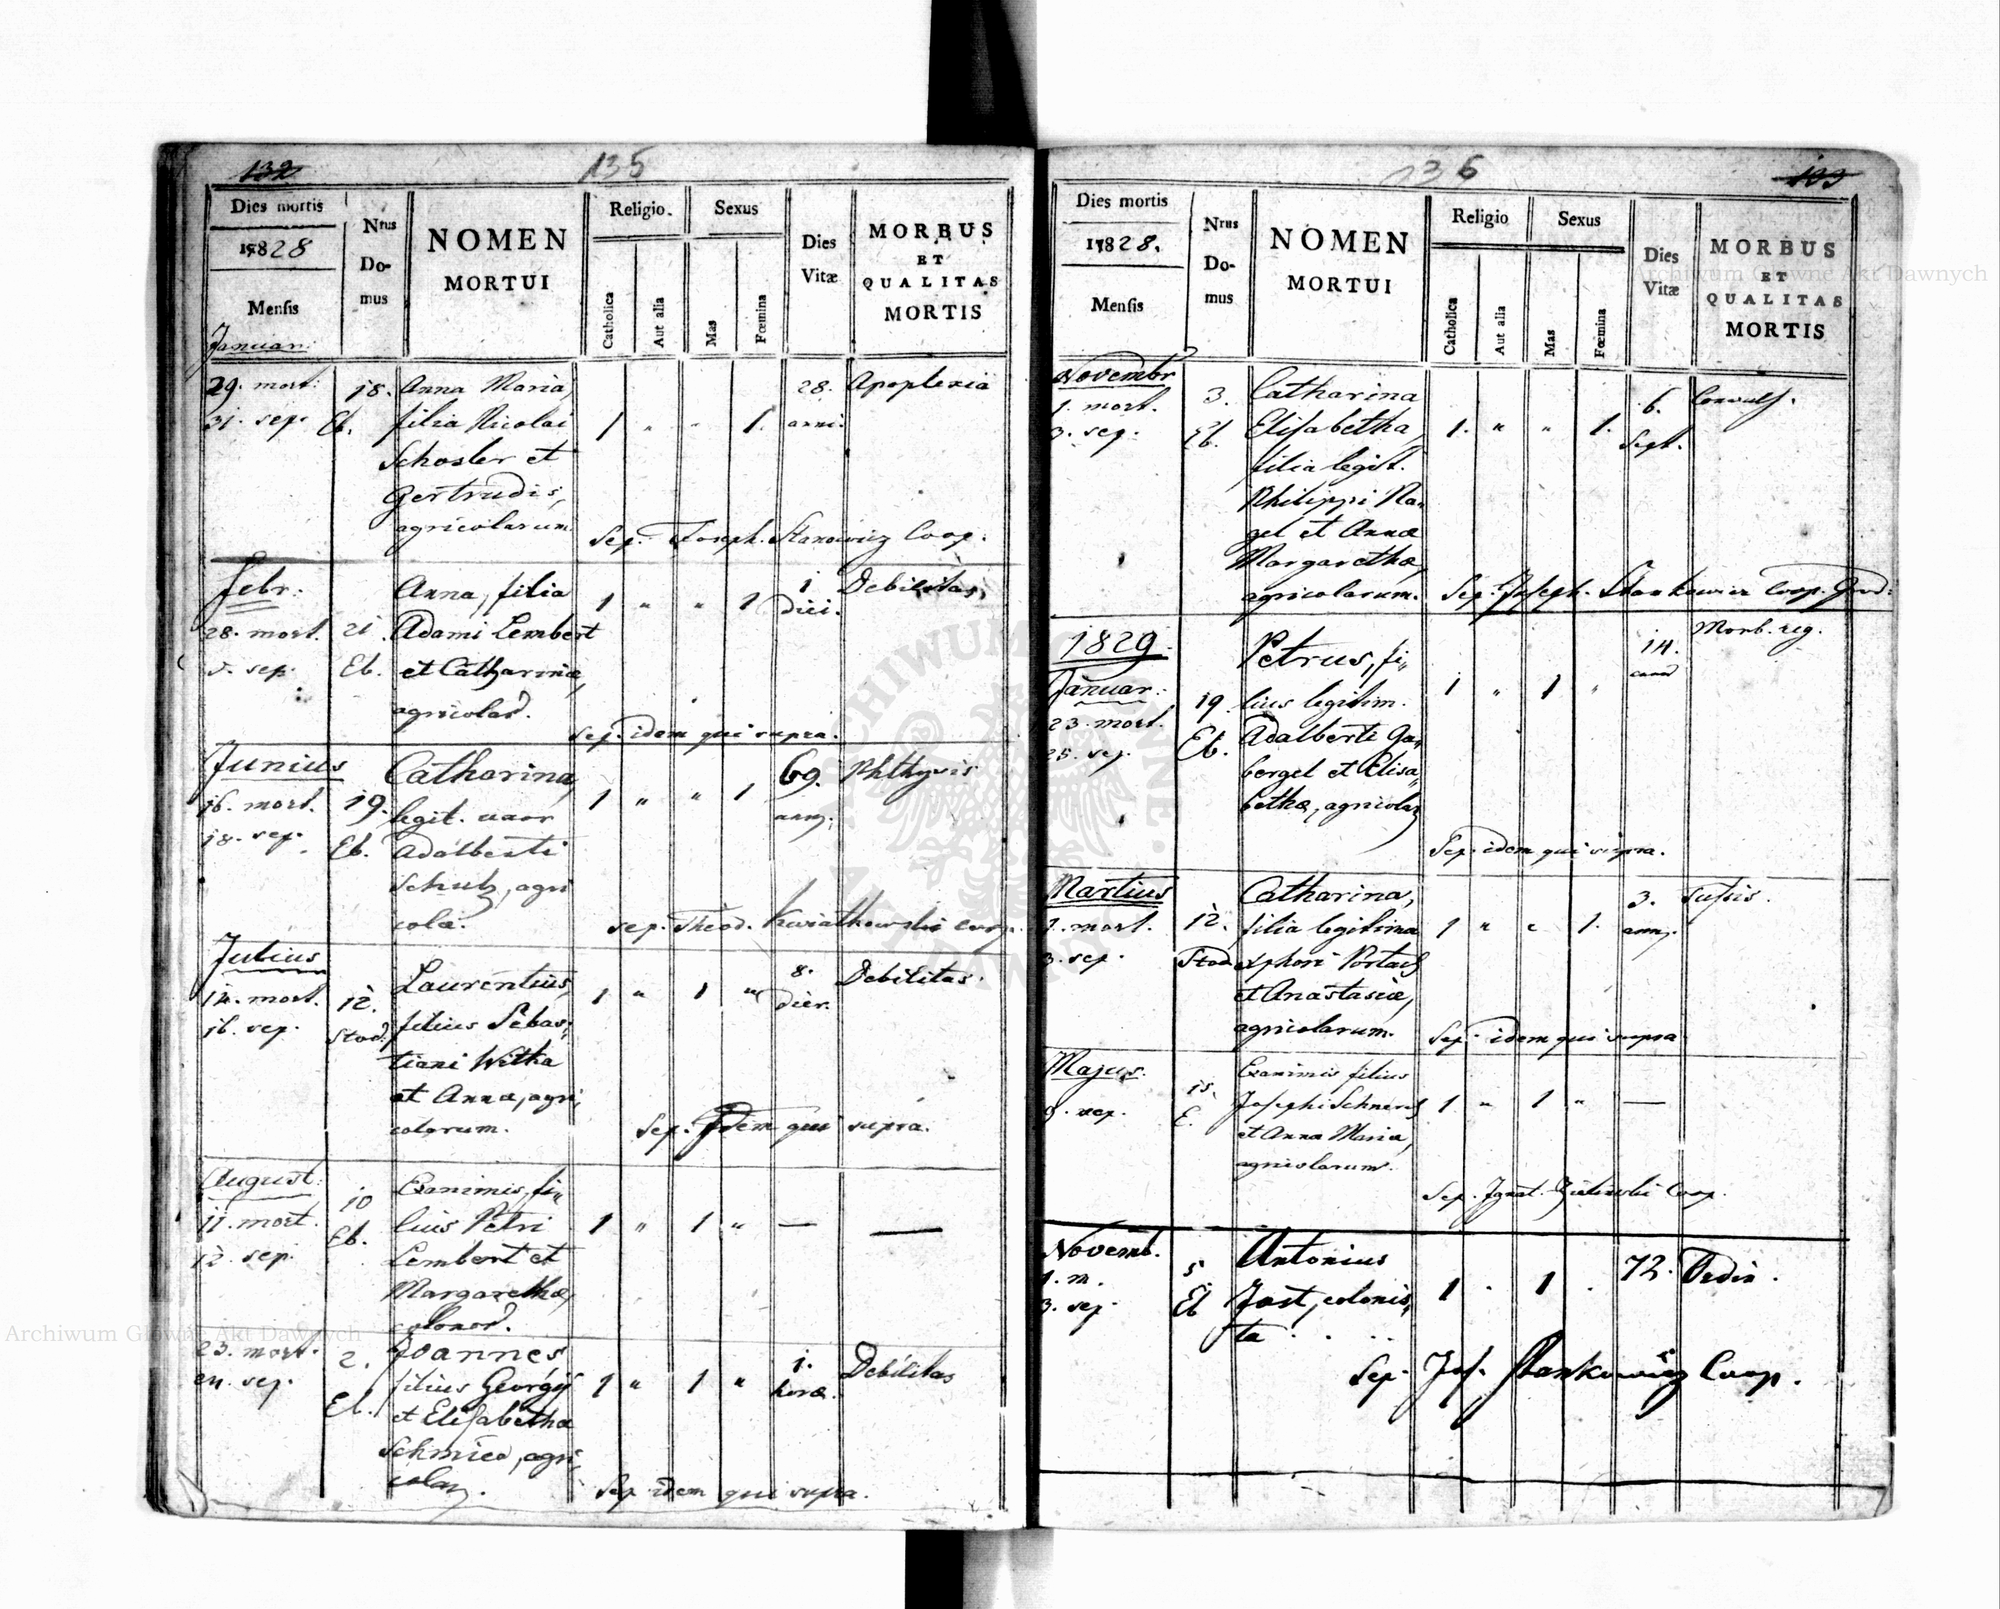 132
135
Dies mortis
1828
Mensis
Nrus
Do-
mus
NOMEN
MORTUI
Religio.
Catholica
Aut alia
Sexus
Mas
Fœmina
Dies
Vitæ
MORBUS
ET
QUALITAS
MORTIS
Januar:
29. mort: 18. Anna Maria, 28. Apoplexia
31. sep. Eb. filia Nicolai 1 " " 1. anni.
Schosler et
Gertrudis,
agricolarum
Sep. Joseph. Coop.
Febr:
Anna, filia 1 " " 1 1 Debilitas,
diei.
28. mort. 21. Adami Lembert
sep. Eb. et Catharinæ,
Sep. idem qui supra.
Junius
Catharina, 69. Phthysis
16. mort. 19. legit. uxor 1 " " 1
18. sep. Eb. Adalberti
Schulz, agri
colæ.
sep. Theod. Kwiathowski coop.
Julius
Laurentius, 8. Debilitas.
14. mort. 12. filius Sebas, 1 " 1 " dier.
16. sep. Stad. tiani Witka
et Annæ, agri,
colarum.
Sep. Idem qui supra.
August:
10 Exanimis, fi,
11. mort. Eb. lius Petri 1 " 1 " — —
12. sep. Lembert et
Margarethæ,
23. mort. 2. Joannes 1. Debilitas
24. sep. Eb. filius Georgij 1 " 1 " horæ.
et Elisabethæ
agri,
Sep idem qui supra.
136
133
Dies mortis
1828.
Mensis
Nrus
Do-
mus
NOMEN
MORTUI
Religio
Catholica
Aut alia
Sexus
Mas
Fœmina
Dies
Vitæ
MORBUS
ET
QUALITAS
MORTIS
Novembr
1. mort. 3. Catharina 6. Convuls.
3. sep. Eb. Elisabetha, 1. " " 1. Sept.
filia legit.
Philippi Na,
gel et Annæ
Margarethæ,
agricolarum.
Sep. Joseph. Stankowicz Coop.
1829.
Petrus, fi, 14. Morb. reg.
Januar: 19 lius legitim. 1 " 1 "
23. mort. Eb. Adalberti Ga,
25. sep. bergel et Elisa,
bethæ,
Sep. idem qui supra.
Martius
Catharina, 3. Tussis.
1. mort. 12. filia legitima 1 " " 1.
3. sep. Stad.
et Anastasiæ,
agricolarum.
Sep. idem qui supra
Majus.
15. Exanimis filius
9. sep. E. Josephi 1. " 1 " —
et Anna Maria,
agricolarum.
Sep. Ignat. Coop.
Novemb.
1. m. 5 Antonius 1 . 1 . 72.
3. sep. Eb Jost, colonis,
ta
Sep. Jos. Stankowicz Coop.
Archiwum Główne Akt Dawnych
Archiwum Główne Akt Dawnych
ARCHIWUM GŁÓWNE AKT DAWNYCH